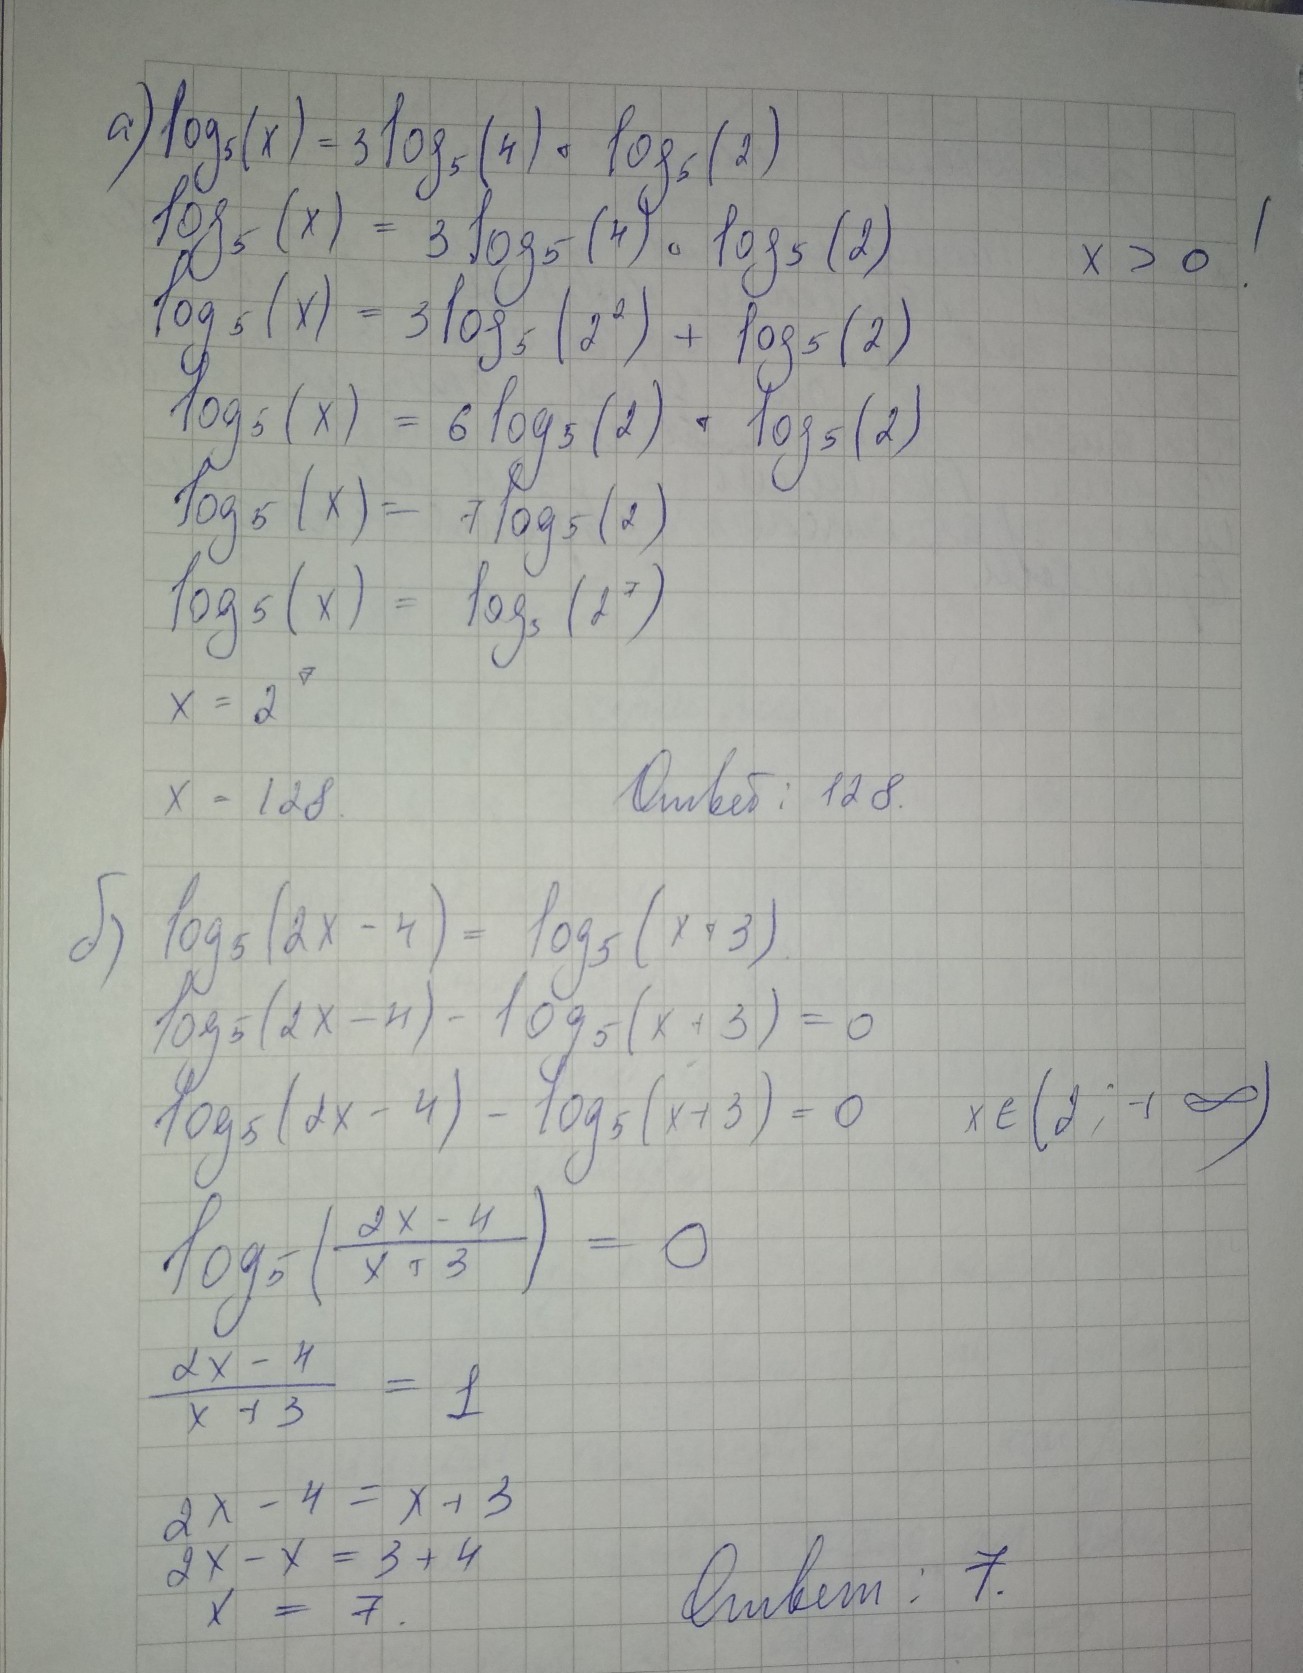 а) log₅(x) = 3log₅(4) + log₅(2)
log₅(x) = 3log₅(4) + log₅(2) x > 0 !
log₅(x) = 3log₅(2²) + log₅(2)
log₅(x) = 6log₅(2) + log₅(2)
log₅(x) = 7log₅(2)
log₅(x) = log₅(2⁷)
x = 2⁷
x = 128. Ответ: 128.
б) log₅(2x - 4) = log₅(x + 3).
log₅(2x - 4) - log₅(x + 3) = 0
log₅(2x - 4) - log₅(x + 3) = 0 x ∈ (2; + ∞)
log₅((2x - 4)/(x + 3)) = 0
(2x - 4)/(x + 3) = 1
2x - 4 = x + 3
2x - x = 3 + 4
x = 7. Ответ: 7.